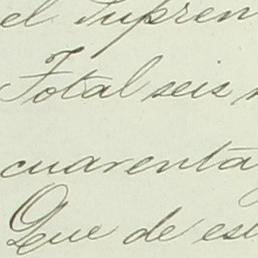 el Suprem
Total seis
cuarenta
Que de es